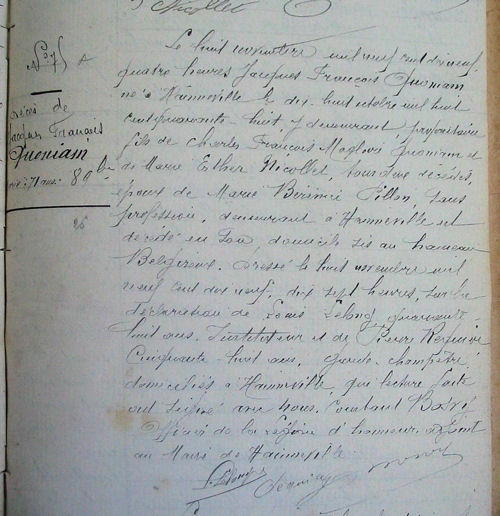 Nicollet
N° 75
Décès de
Jacques François
Queniam
71 ans
Le huit novembre mil neuf cent dix neuf
quatre heures Jacques François Queniam
né à Hainneville le dix huit octobre mil huit
cent quarante huit y demeurant, propriétaire
fils de Charles François Magloire Queniam et
de Marie Esther Nicollet, tous deux décédés,
époux de Marie Pillon, sans
profession, demeurant à Hainneville est
décédé en son domicile sis au hameau
Belgireux. Dressé le huit novembre mil
neuf cent dix neuf, dix sept heures, sur la
déclaration de Louis Lelong quarante
huit ans, Instituteur et de Pierre
Cinquante huit ans, garde champêtre
domiciliés à Hainneville, qui lecture faite
ont signé avec nous. Constant
Officier de la légion d'honneur adjoint
au Maire de Hainneville.
Lelong